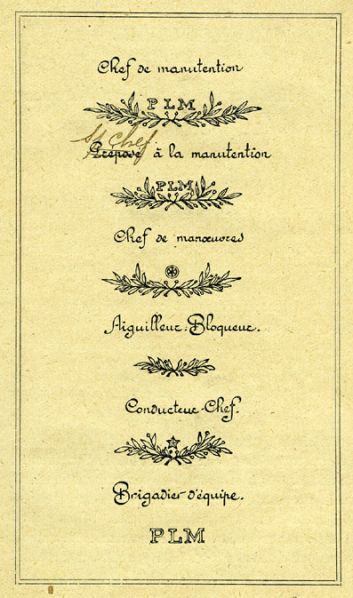 Chef de manutention
PLM
ss Chef
Préposé à la manutention
PLM
Chef de manœuvres
Aiguilleur-Bloqueur.
Conducteur-Chef.
Brigadier d'équipe.
PLM